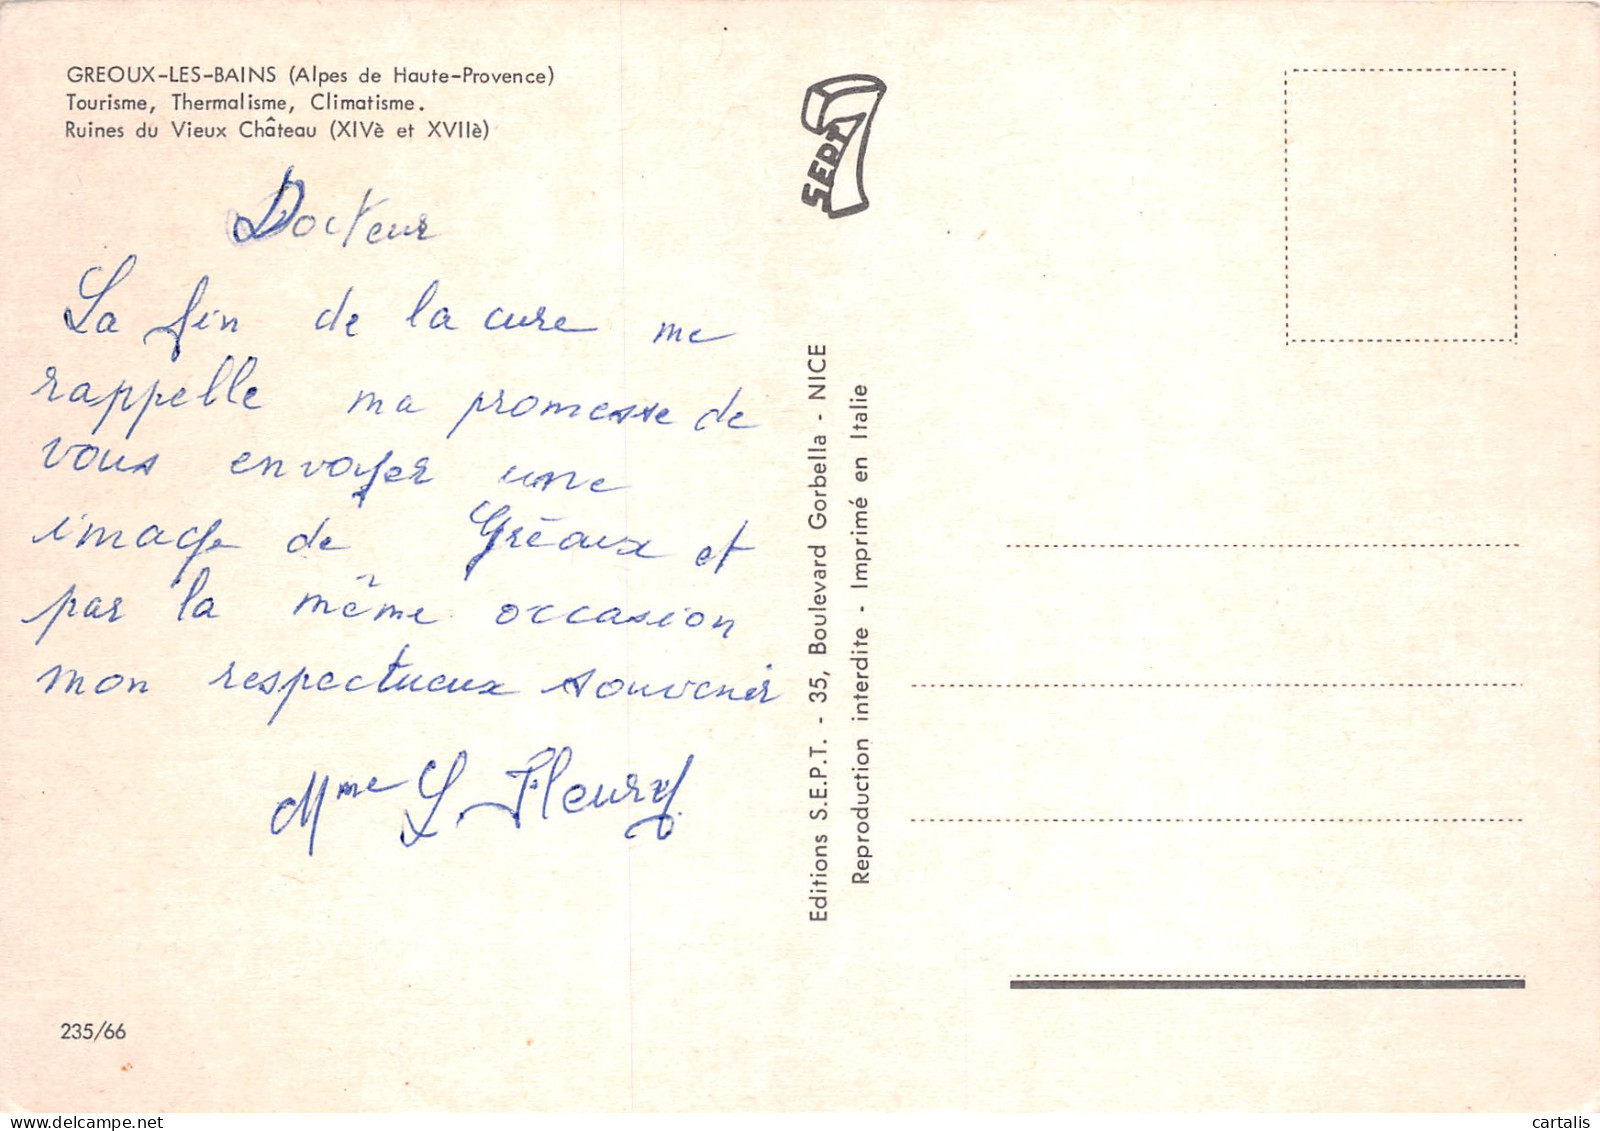 GREOUX-LES-BAINS (Alpes de Haute-Provence)
Tourisme, Thermalisme, Climatisme.
Ruines du Vieux Château (XIVè et XVIIè)
Docteur
La fin de la cure me
rappelle ma promesse de
vous envoyer une
image de Gréoux et
par la même occasion
mon respectueux souvenir
Mme L. Fleury
235/66
SEPT
Editions S.E.P.T. - 35, Boulevard Gorbella - NICE
Reproduction interdite - Imprimé en Italie
cartalis